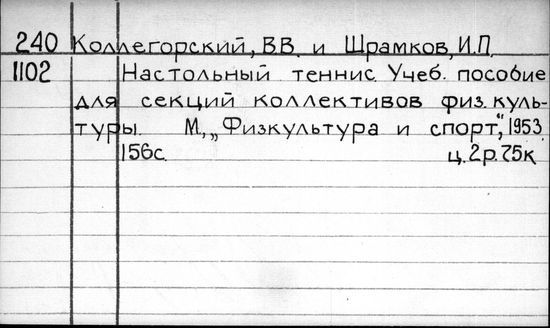 240 Коллегорский, В.В. и Шрамков, И.П.
1102 Настольный теннис. Учеб. пособие
для секций коллективов физ. куль-
туры. М., „Физкультура и спорт", 1953.
156с. ц. 2р. 75к